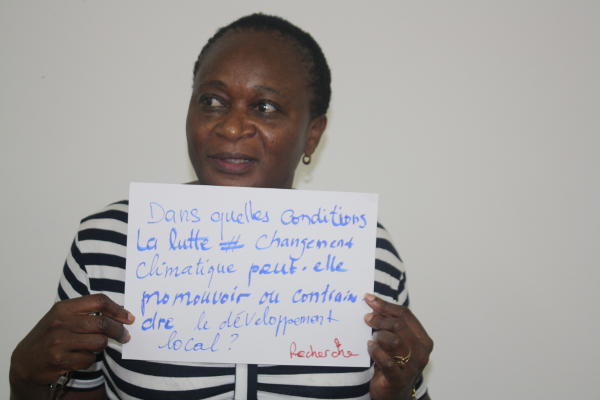 Dans quelles conditions
La lutte # changement
climatique peut-elle
promouvoir ou contrain
dre le développement
local ?
Recherche